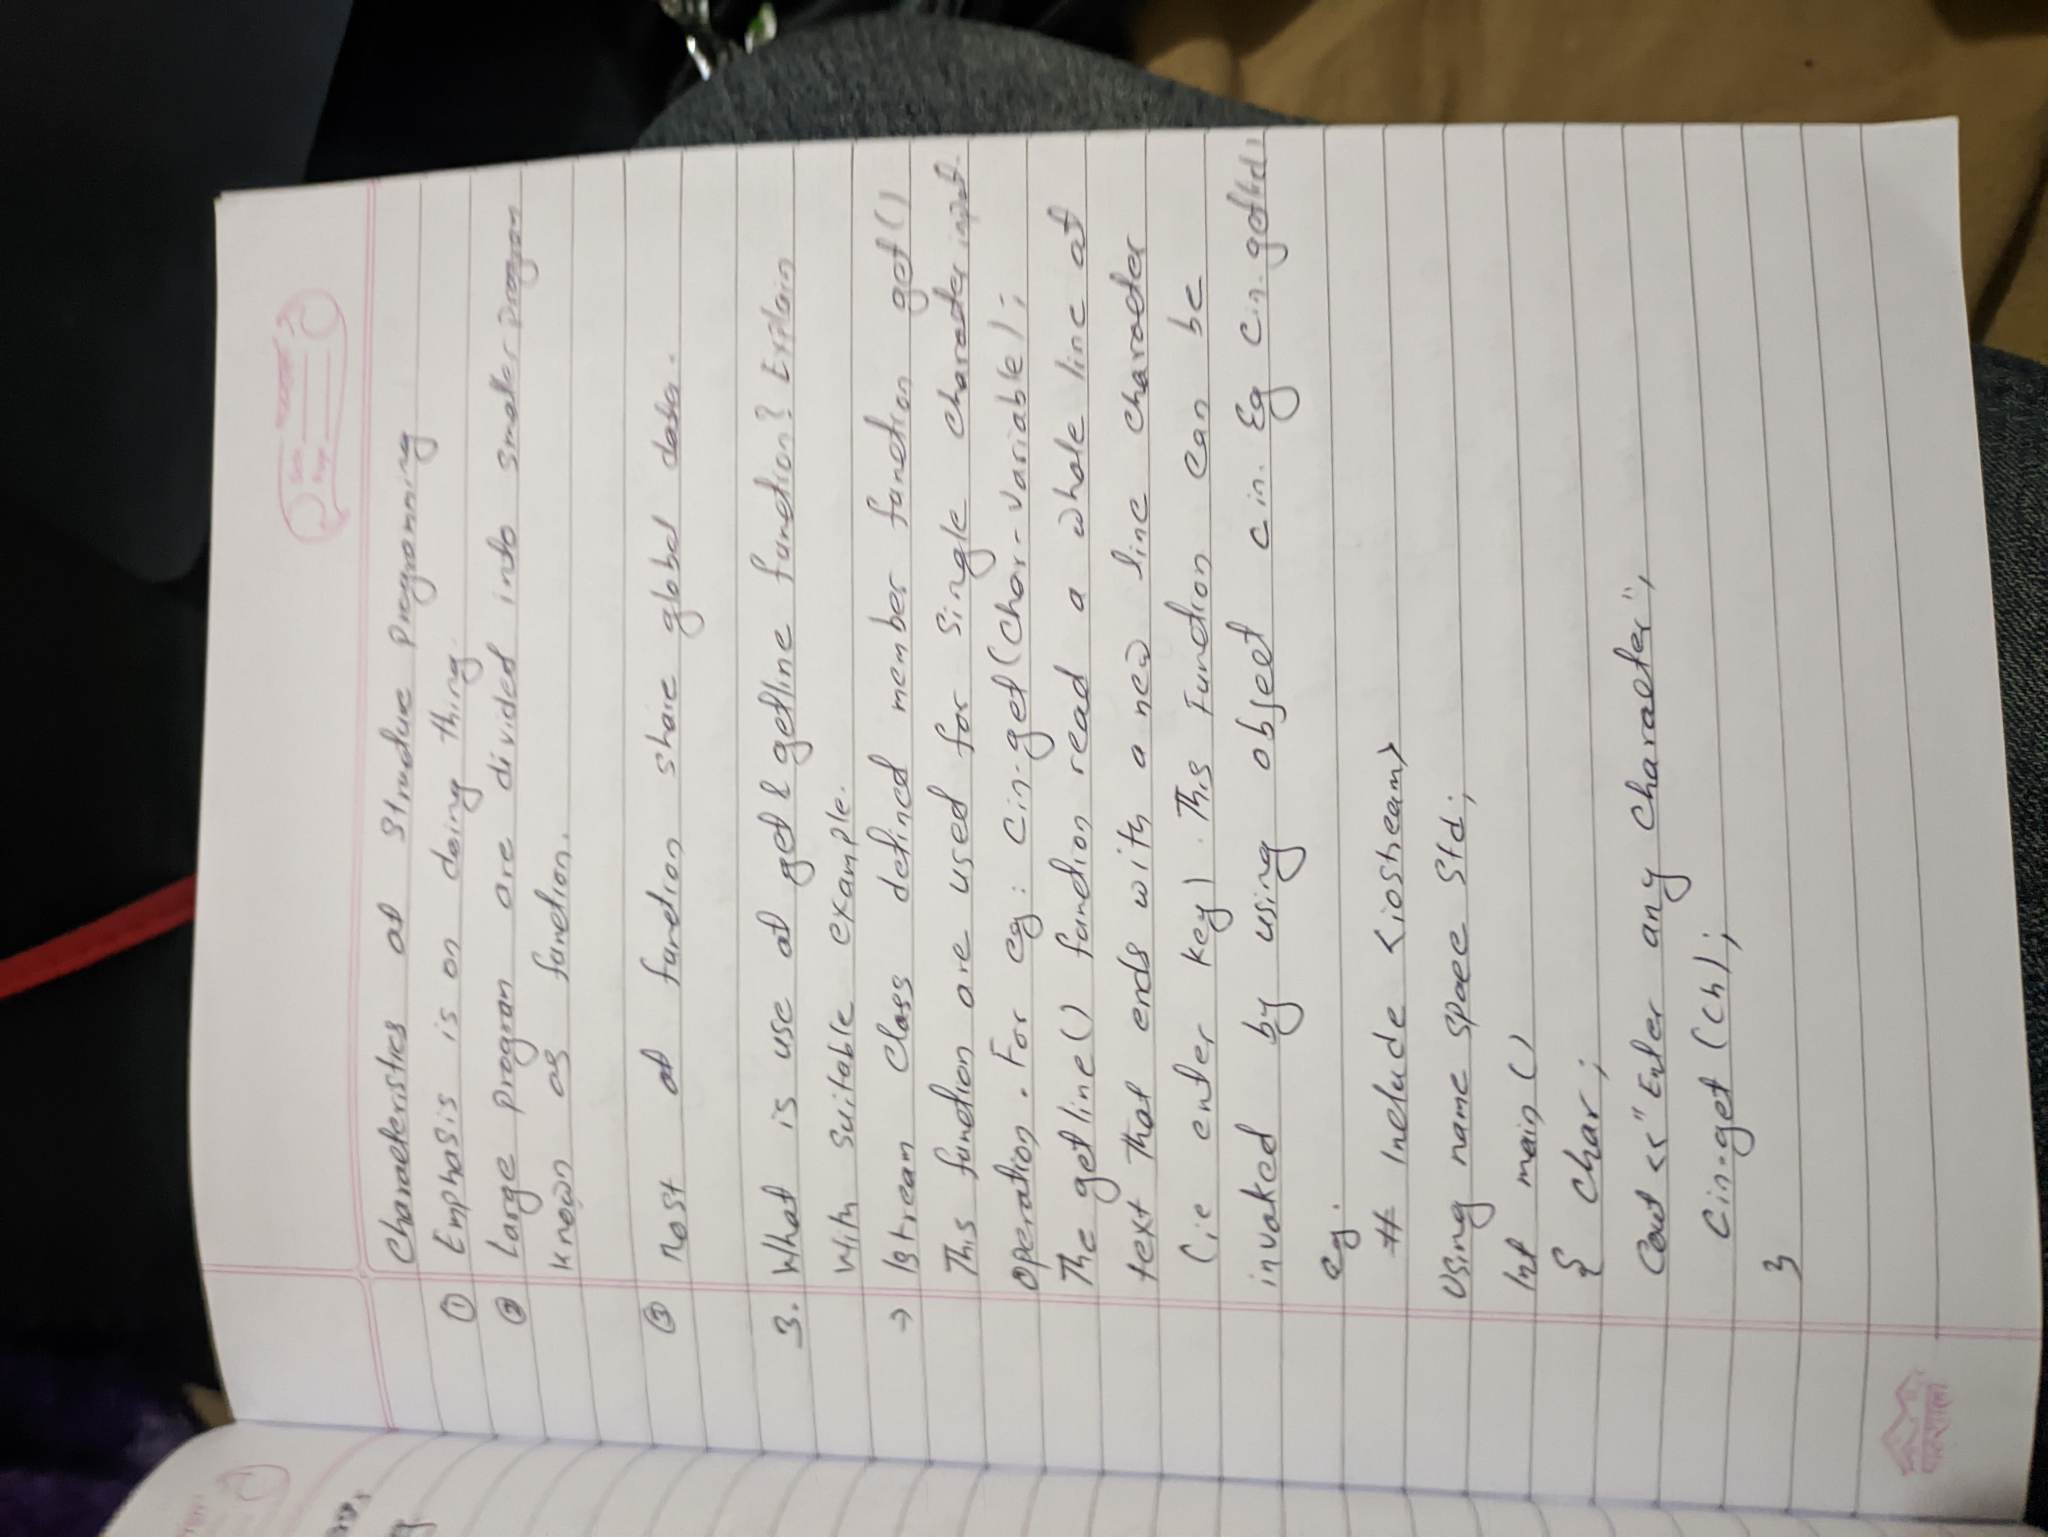 Characteristics of Structue Programming
① Emphasis is on doing thing.
② Large program are divided into smaller program
known as function.
③ Most of function share global data.
3. What is use of get & getline function? Explain
with suitable example.
→ Istream class defined member function get()
This function are used for single character input
Operation. For eg: cin.get(char-variable);
The getline() function read a whole line of
text that ends with a new line character
(ie enter key). This Function can be
invoked by using object cin. Eg cin.get(ch);
eg.
# Include <iostream>
Using name space std;
Int main()
{ char;
Cout <<"Enter any character";
Cin.get(ch);
}